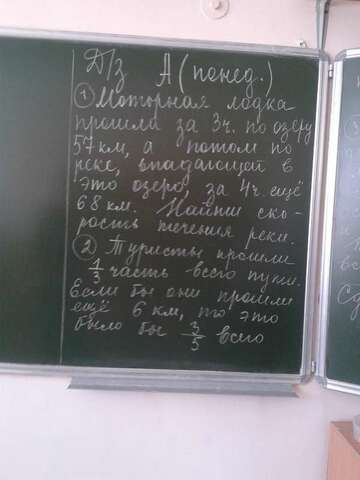 Д/з А (понед.)
① Моторная лодка
прошла за 3ч. по озеру
57 км, а потом по
реке, впадающей в
это озеро, за 4ч. ещё
68 км. Найти ско-
рость течения реки.
② Туристы прошли
1/3 часть всего пути.
Если бы они прошли
ещё 6 км, то это
было бы 3/5 всего